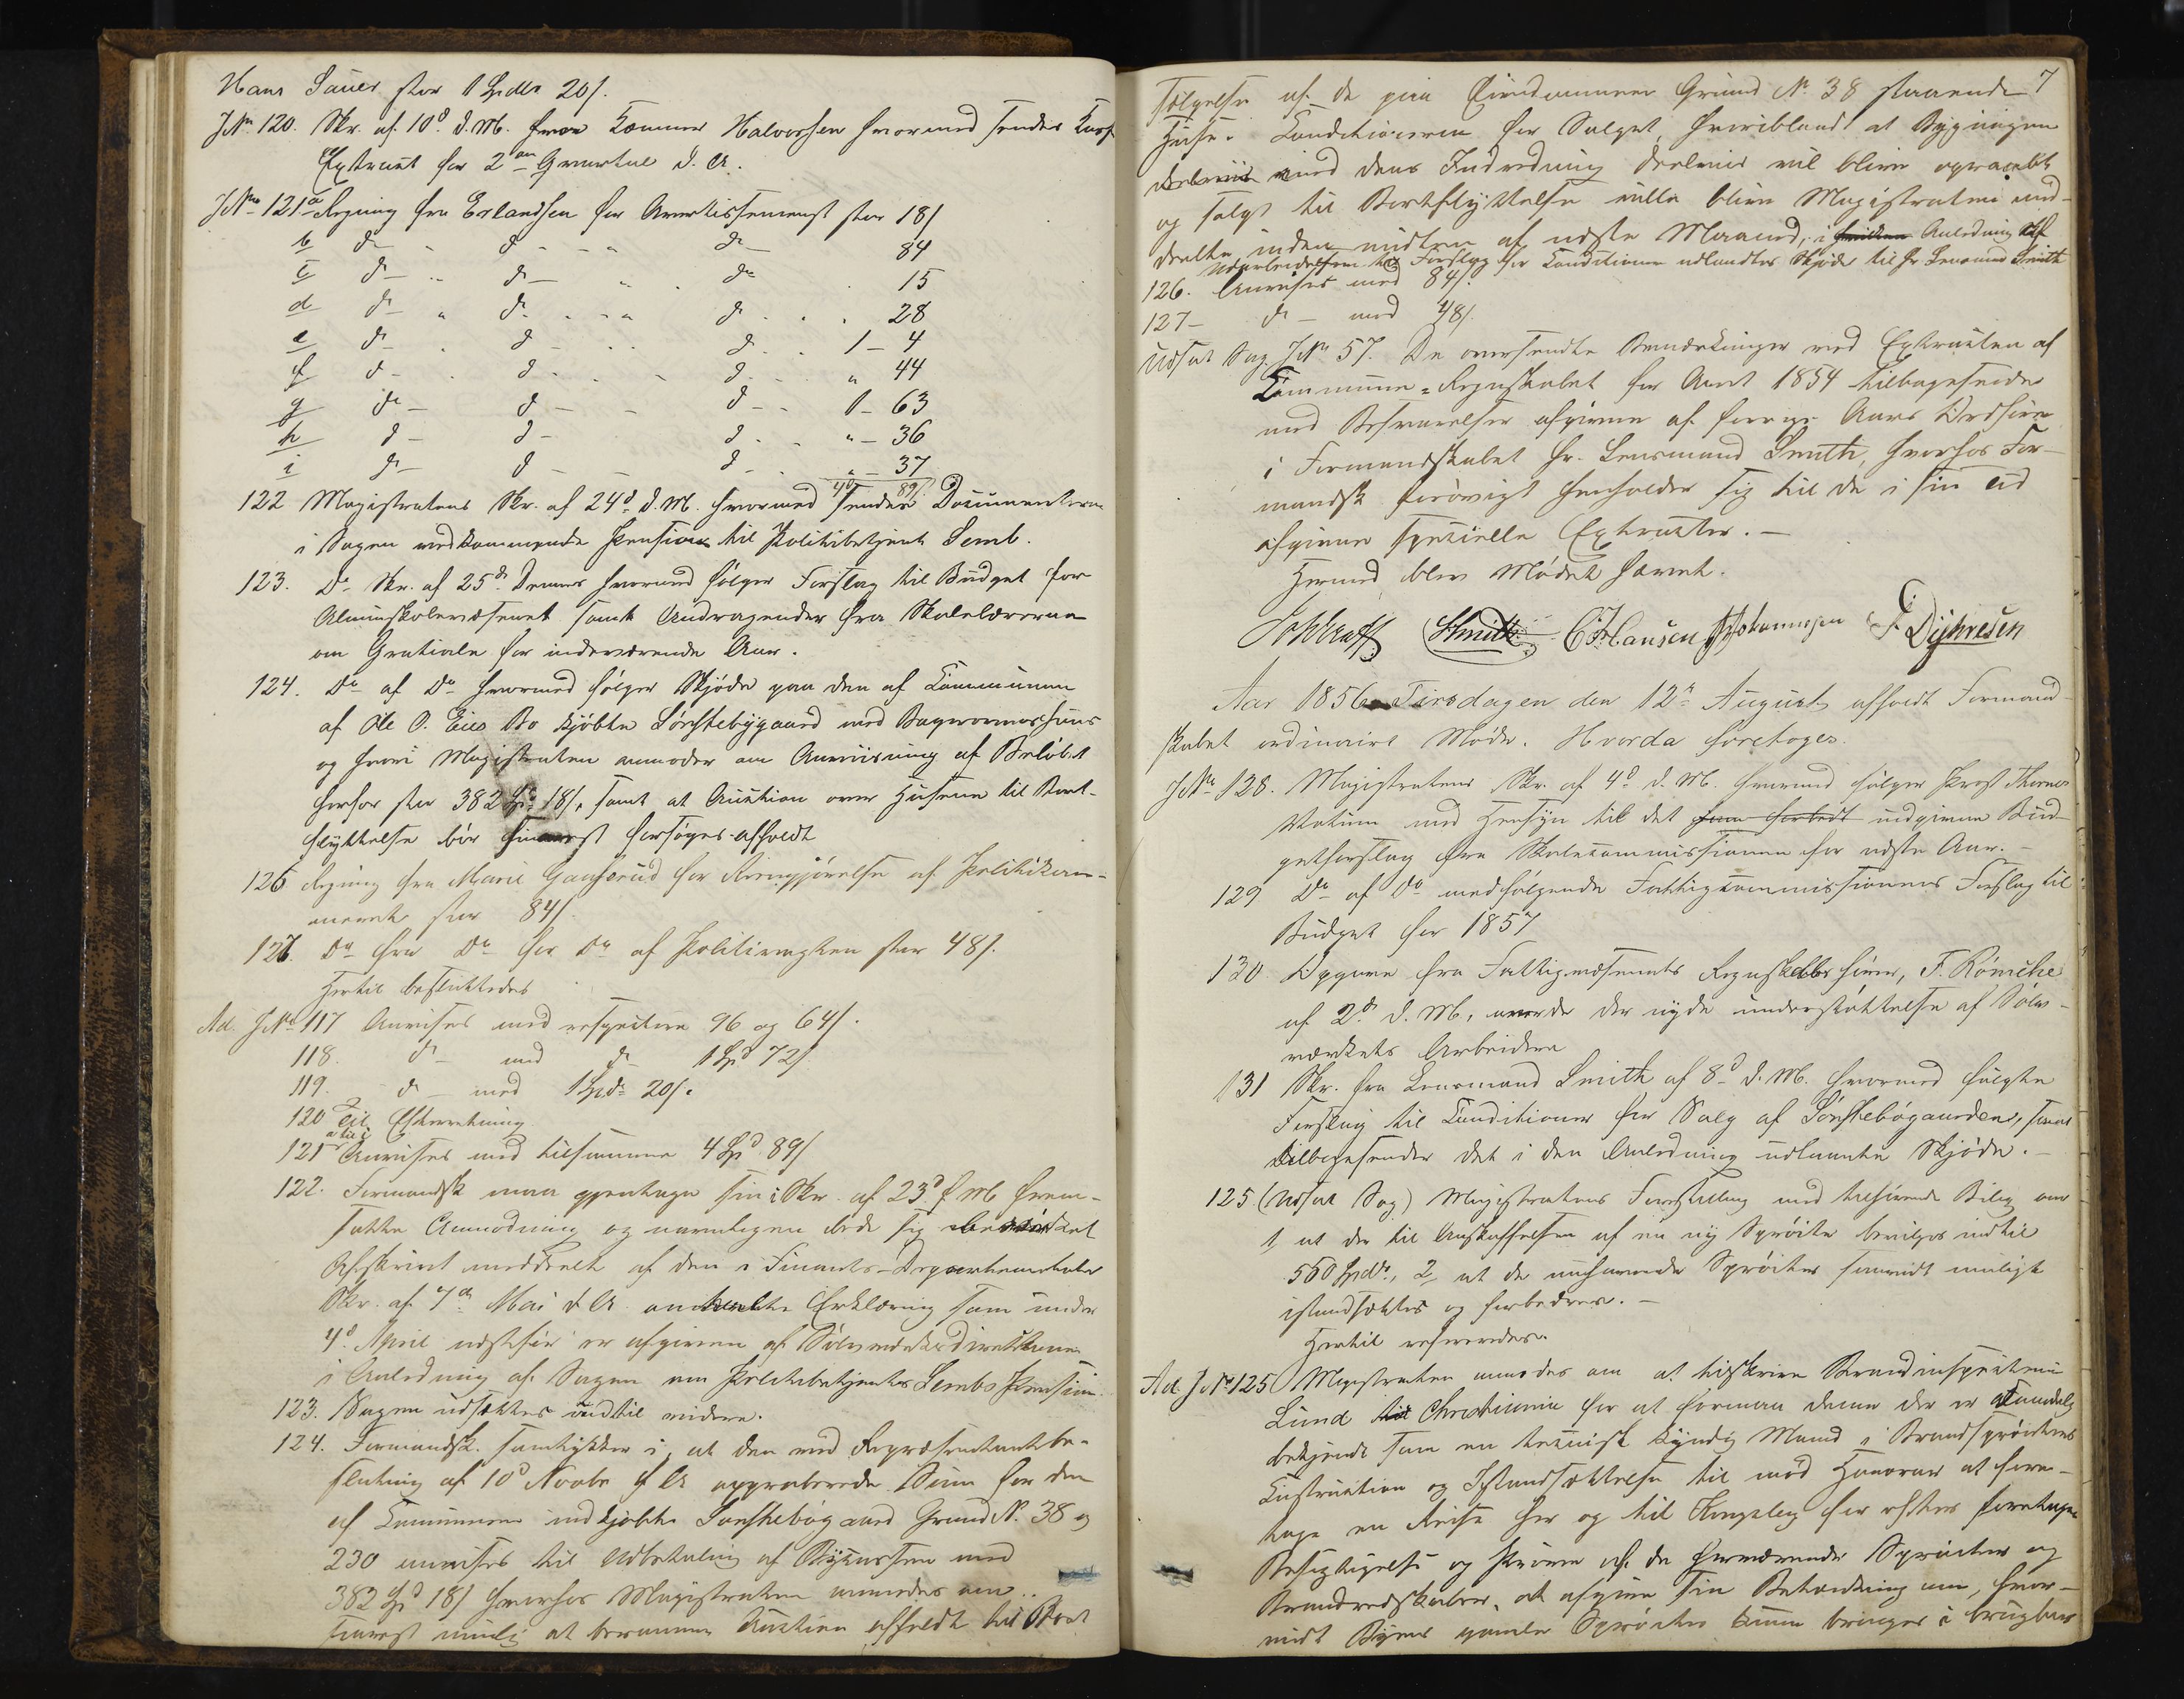 Hans Sauer stor 1 Spdlr 20/.
JNo 120. Skr. af 10d d.M. fra Kæmner Halvorsen hvormed sendes
Extract for 2den Qvartal d. A.
JNo 121 a Regning fra Erlandsen for Avertissement stor 18/
b do - do - - do 84
c do - do - do 15
d do - do - do 28
e do - do - do 1 - 4
f do - do - do " 44
g do - do - do 1 - 63
h do - do - do " - 36
i do - do - do " - 37
4 89/.
122 Magistratens Skr. af 24d d.M. hvormed sendes Documenterne
i Sagen vedkommende Pension til Politibetjent Lemb.
123. Do Skr. af 25de Dennes hvormed følger Forslag til Budget for
Almueskolevæsenet samt Andragender fra Skolelærerne
om Gratiale for indeværende Aar.
124. Do af Do hvormed følger Skjøde paa den af Communen
af Ole O. Eies Bo kjøbte Sørstebygaard med
og hvori Magistraten anmoder om Anviisning af Beløbet
herfor stor 382 Spd 18/, samt at Auktion over Husene til Bort-
flyttelse bør snarest forsøges afholdt
126 Regning fra Marie Gauserud for Reengjørelse af Politikam-
meret stor 84/.
127. Do fra Do for Do af Politivagten stor 48/.
Hertil besluttedes
Ad. JNo 117 Anvises med respective 96 og 64/.
118. do - med do 1 Spd 72/
119. do - med 1 Spd 20/.
120 Til Efterretning
a til i
121 Anvises med tilsammen 4 Spd 89/
122. Formandsk. maa gjentage sin i Skr. af 23d f M frem-
satte Anmodning og navnligen bede sig
Afskrivt meddeelt af den i Finants-Departementets
Skr. af 7de Mai d A. Erklæring som under
4d April næstfør er afgiven af Sølvværksdirectionen
i Anledning af Sagen om Politibetjent Lembs Pension.
123. Sagen udsættes indtil videre.
124. Formandsk. samtykker i, at den ved Repræsentantbe-
slutning af 10d Novbr f A approberede Sum for den
af Communen indkjøbte Sørstebøgaard Grund No. 38 og
230 anvises til Udbetaling af Bykassen med
382 Spd 18/ hvorhos Magistraten anmodes om
snarest mulig at berammes Auktion afholdt til Bort
7
sælgelse af de paa Eiendommen Grund No 38 staaende
Huse. Conditionerne for Salget, hvoriblandt at Bygningen
med dens Indredning deelviis vil blive opraabt
og solgt til Bortflyttelse ville blive Magistraten med-
deelte inden midten af næste Maaned, i Anledning af
Udarbeidelsen til Forslag for Conditioner udlaantes Skjøde til Hr Lensmand Smith
126. Anvises med 84/.
127 - do - med 48/.
Udsat Sag JNo 57. De oversendte Bemærkninger ved Extracten af
Commune-Regnskabet for Aaret 1854 tilbagesendes
med Besvarelser afgivne af forrige Aars Ordfører
i Formandskabet Hr. Lensmand Smith, hvorhos For-
mandsk forøvrigt henholder sig til de i sin Tid
afgivne specielle Extracter. -
Hermed blev Mødet hævet.
Smith C Hansen Johannesen Dijhresen
Aar 1856 Tirsdagen den 12te August afholdt Formand-
skabet ordinairt Møde. Hvorda foretoges.
JNo 128. Magistratens Skr. af 4d d.M. hvormed følger Provst Thornes
Votum med Hensyn til det indgivne Bud-
getforslag fra Skolecommissionen for næste Aar. -
129 Do af Do medfølgende Fattigcommissionens Forslag til
Budget for 1857
130. Opgave fra Fattigvæsenets Regnskabsfører, F. Römche
af 2d d.M., over de der nyde understøttelse af Sølv-
værkets Arbeidere
131 Skr. fra Lensmand Smith af 8d d.M. hvormed fulgte
Forslag til Conditioner for Salg af Sørstebøgaarden, samt
tilbagesender det i den Anledning udlaante Skjøde. -
125 (Udsat Sag) Magistratens Forestilling med tilhørende Bilag om
1, at der til Anskaffelsen af en ny Sprøite bevilges indtil
550 Spdr, 2, at de nuhavende Sprøiter saavidt muligt
istandsættes og forbedres. -
Hertil
Ad. JNo 125 Magistraten anmodes om at tilskrive Brandinspecteur
Lund Christiania for at formaa denne der er almindelig
bekjendt som en teknisk kyndig Mand i Brandsprøiters
Construction og Istandsættelse til mod Honorar at fore-
tage en Reise her og til Kongsberg for efter foretagen
Besigtigelse og Prøve af de herværende Sprøiter og
Brandredskaber, at afgive sin Betænkning om, hvor-
vidt Byens gamle Sprøiter kunne bringes i brugbar